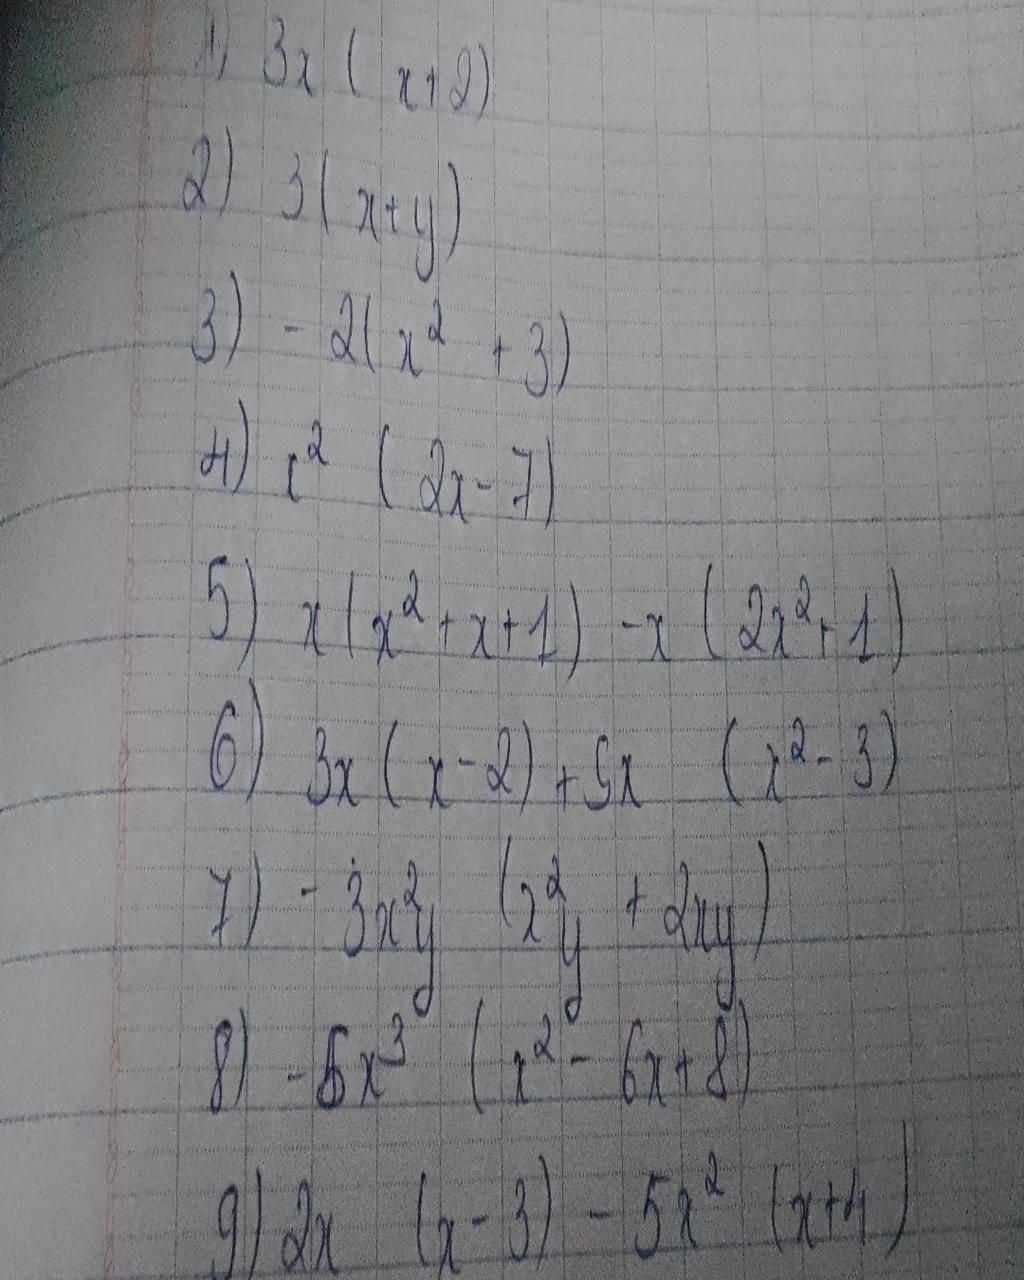 1) 3x ( x+2)
2) 3( x+y)
3) - 2( x² + 3)
4) x² ( 2x - 7)
5) x(x² + x + 1) - x ( 2x² + 1)
6) 3x ( x - 2) + 5x ( x² - 3)
7) - 3x²y (x²y + 2xy)
8) - 5x³ ( x² - 6x + 8)
9) 2x (x - 3) - 5x² (x+4)